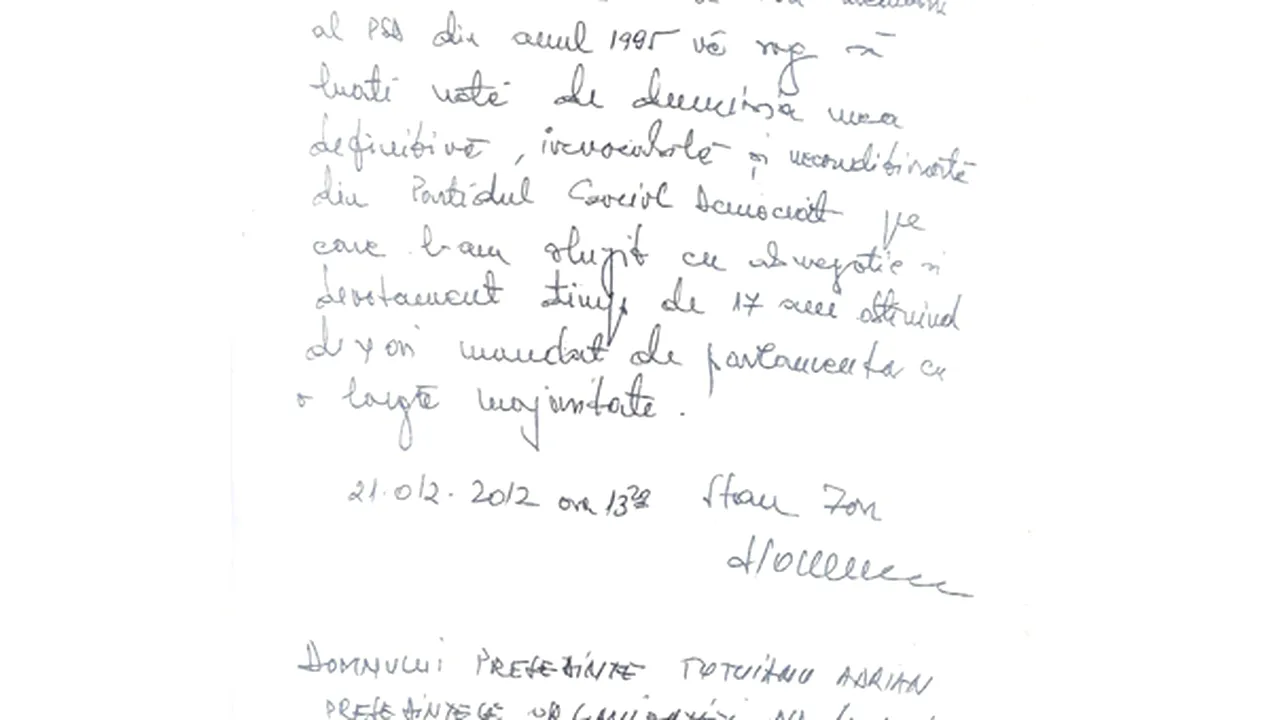 al PSD din anul 1995 vă rog să
luați notă de demisia mea
definitivă, irevocabilă și necondiționată
din Partidul Social Democrat pe
care l-am slujit cu abnegație și
devotament timp de 17 ani obținind
de 4 ori mandat de parlamentar cu
o largă majoritate.
21.02.2012 ora 13
Stan Ion
DOMNULUI PREȘEDINTE TUTUIANU ADRIAN
PREȘEDINTELE ORGANIZAȚIEI